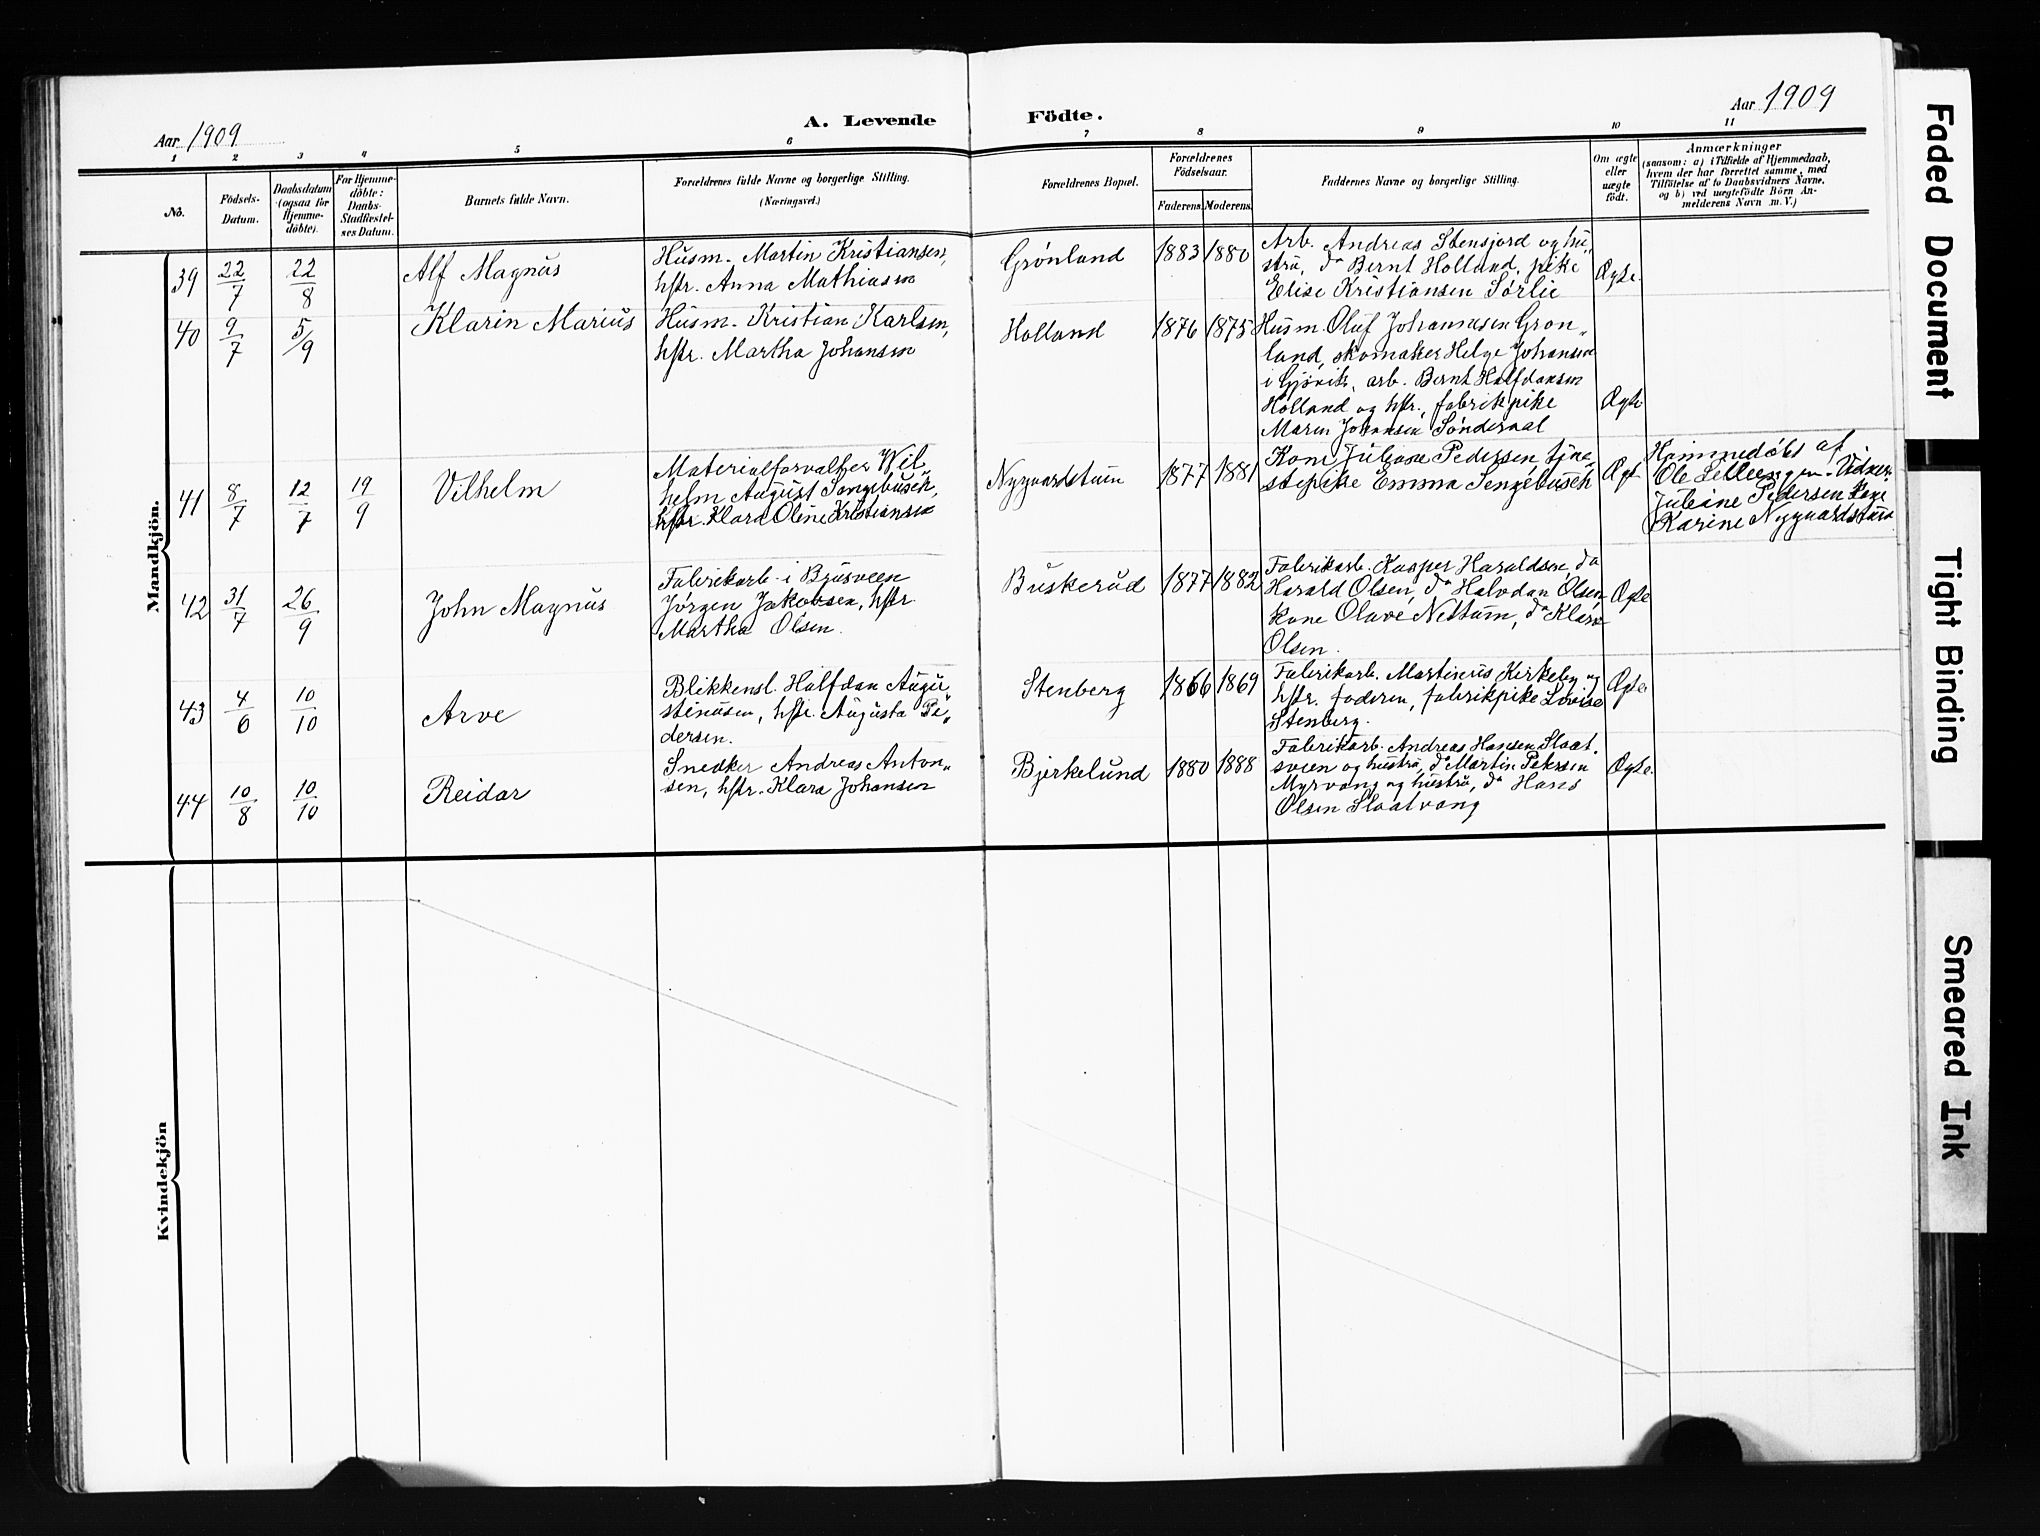 Aar 1909
A. Levende Födte.
Aar 1909
1 2 3 4 5 6 7 8 9 10 11
No.
Födsels-
Datum.
Daabsdatum
(ogsaa for
Hjemme-
döbte).
For Hjemme-
döbte:
Daabs-
Stadfæstel-
ses Datum.
Barnets fulde Navn.
Forældrenes fulde Navne og borgerlige Stilling.
(Næringsvei.)
Forældrenes Bopæl.
Forældrenes
Födselsaar.
Faderens. Moderens.
Faddernes Navne og borgerlige Stilling.
Om ægte
eller
uægte
födt.
Anmærkninger
(saasom: a) i Tilfælde af Hjemmedaab,
hvem der har forrettet samme, med
Tilföielse af to Daabsvidners Navne.
og b) ved uægtefödte Börn An-
melderens Navn m. V.)
Mandkjön.
39
22/7
22/8
Alf Magnus
Husm. Martin Kristiansen,
hstr. Anna Mathiasen
Grønland
1883 1880
Arb. Andreas Stensjord og hu„
stru, do Bernt Holland, pike
Elise Kristiansen Sørlie
Ægte.
40
9/7
5/9
Klarin Marius
Husm. Kristian Karlsen,
hstr. Martha Johansen
Holland
1876 1875
Husm. Oluf Johannesen Grøn„
land, skomaker Helge Johansen
i Gjøvik, arb. Bernt Halfdansen
Holland og hstr., fabrikpike
Maren Johansen Sønderaal
Ægte
41
8/7
12/7
19/9
Vilhelm
Materialforvalter Wil„
helm August Sengebusch,
hstr. Klara Oline Kristiansen
Nygaardstuen
1877 1881
Kone Juliane Pedersen, tjene„
stepike Emma Sengebusch
Ægt
Hjemmedøbt af
Ole Lilleengen. Vidner:
Juliane Pedersen kone
Karine Nygaardstuen
42
31/7
26/9
John Magnus
Fabrikarb. i Brusveen
Jørgen Jakobsen, hstr
Martha Olsen.
Buskerud
1877 1882
Fabrikarb. Kasper Haraldsen, do
Harald Olsen, do Halvdan Olsen,
kone Olave Nettum, do Klara
Olsen.
Ægte
43
4/6
10/10
Arve
Blikkensl. Halfdan Augu„
stinusen, hstr. Augusta Pe„
dersen.
Stenberg
1866 1869
Fabrikarb. Martinius Kirkeby og
hstr. faderen, fabrikpike Lovise
Stenberg.
Ægte
44
10/8
10/10
Reidar
Snedker Andreas Anton„
sen, hstr. Klara Johansen
Bjerkelund
1880 1888
Fabrikarb. Andreas Hansen Slaat„
sveen og hustru, do Martin Petersen
Myrvang og hustru, do Hans
Olsen Slaatvang
Ægte.
Kvindekjön
Faded Document
Tight Binding
Smeared Ink